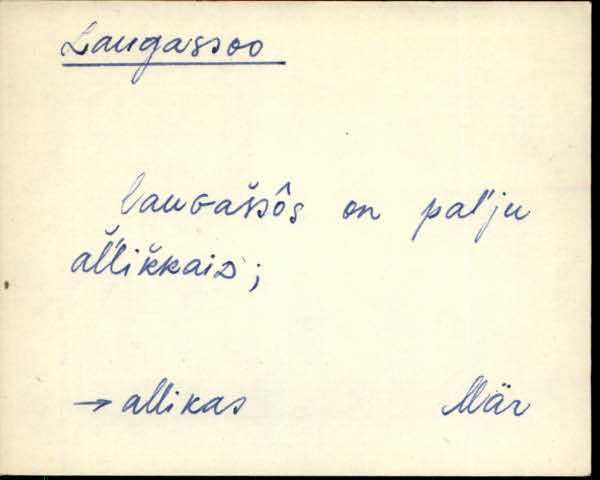 Laugassoo
lauɢas̆sôs on pal'ju
al̆likkaiᴅ;
→ allikas Mär